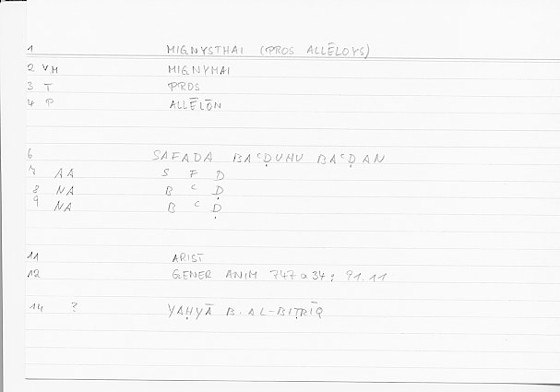 1 MIGNYSTHAI (PROS ALLĒLOYS)
2 VM MIGNYMAI
3 T PROS
4 P ALLĒLŌN
6 SAFADA BAʿḌUHU BAʿḌAN
7 AA S F D
8 NA B ʿ Ḍ
9 NA B ʿ Ḍ
11 ARIST
12 GENER ANIM 747 a 34; 91.11
14 ? YAḤYĀ B. AL-BIṬRĪQ